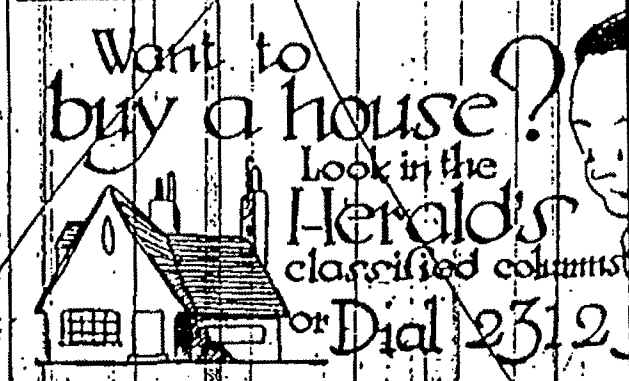 Want to
buy a house?
Look in the
Herald's
classified columns
or Dial 2312